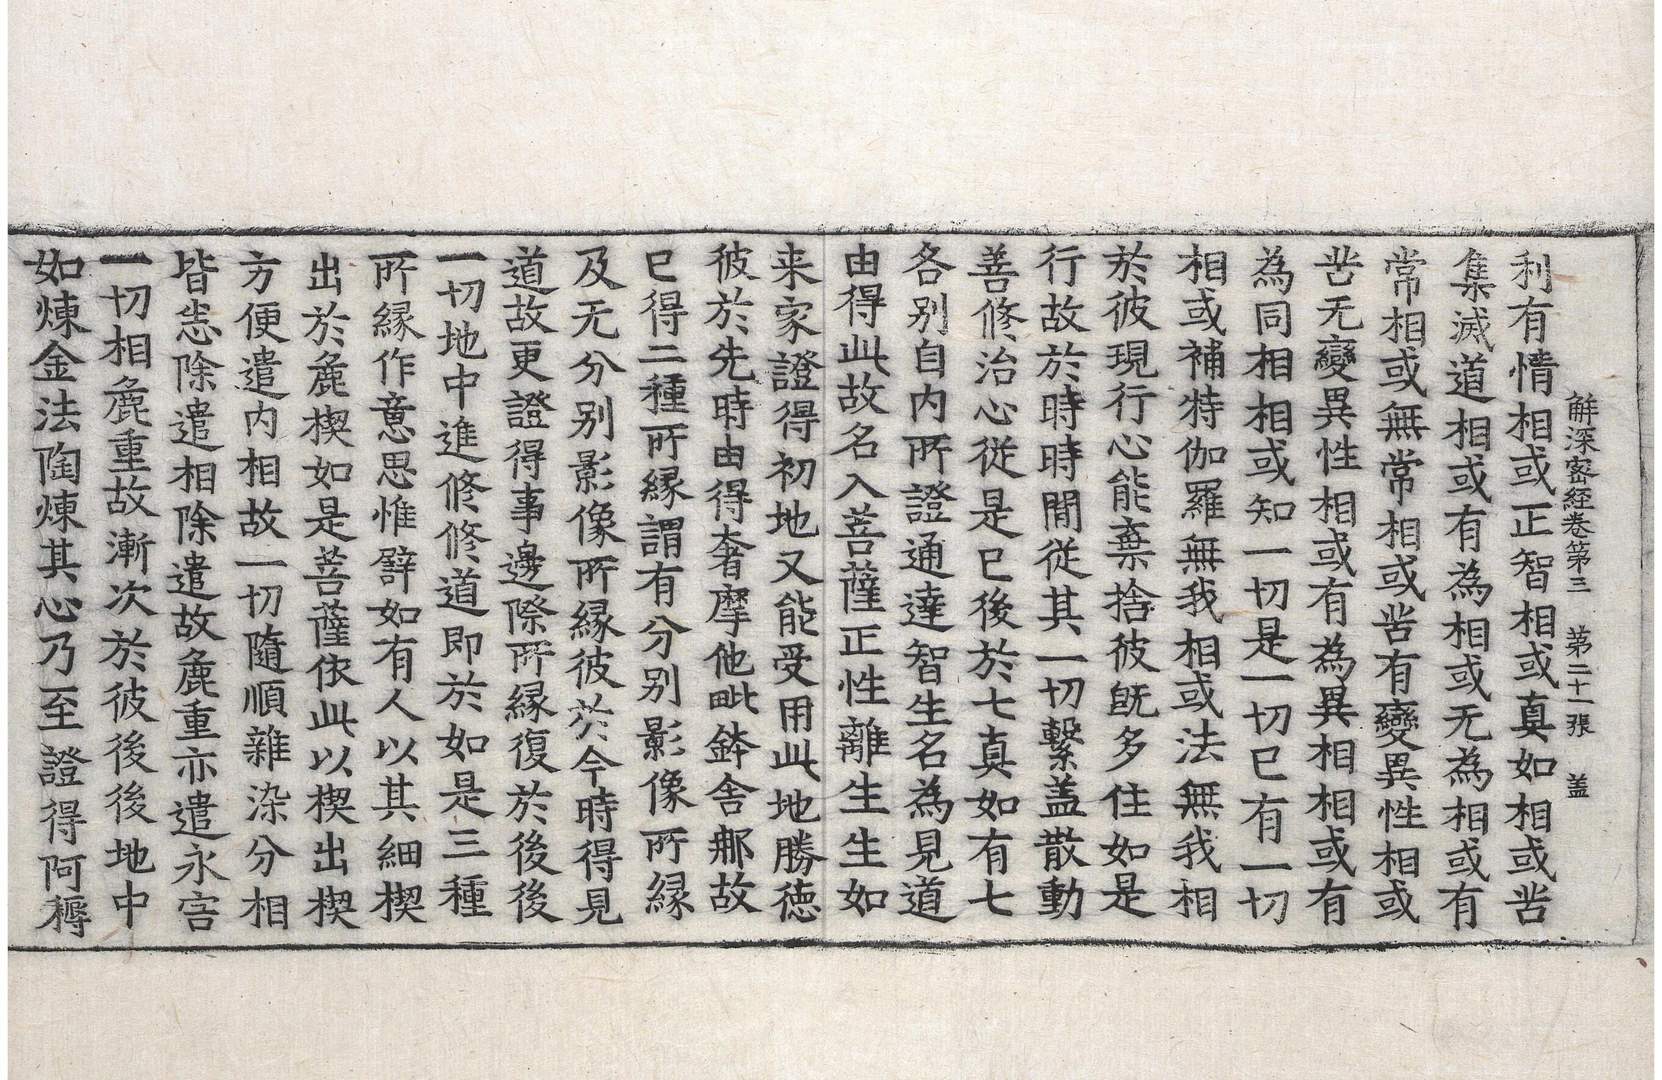 解深密經卷第三 第二十一張 盖
利有情相或正智相或真如相或苦
集滅道相或有為相或无為相或有
常相或無常相或苦有變異性相或
苦无變異性相或有為異相相或有
為同相相或知一切是一切已有一切
相或補特伽羅無我相或法無我相
於彼現行心能棄捨彼既多住如是
行故於時時間從其一切繫盖散動
善修治心從是已後於七真如有七
各别自内所證通達智生名為見道
由得此故名入菩薩正性離生生如
来家證得初地又能受用此地勝德
彼於先時由得奢摩他毗鉢舍那故
已得二種所縁謂有分别影像所縁
及无分别影像所縁彼於今時得見
道故更證得事邊際所縁復於後後
一切地中進修修道即於如是三種
所縁作意思惟譬如有人以其細楔
出於麁楔如是菩薩依此以楔出楔
方便遣内相故一切隨順雜染分相
皆悉除遣相除遣故麁重亦遣永害
一切相麁重故漸次於彼後後地中
如煉金法陶煉其心乃至證得阿耨